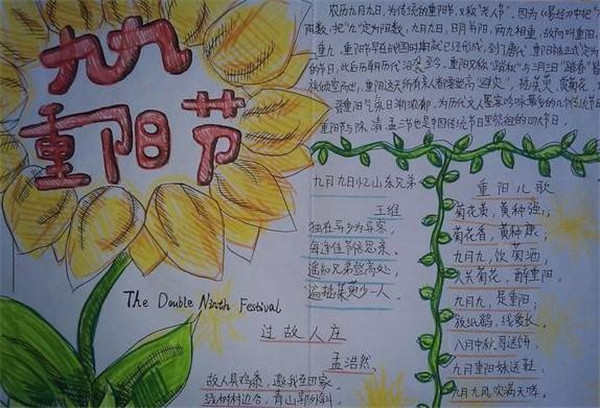 九九
重阳节
The Double Ninth Festival
农历九月九日,为传统的重阳节,又称"老人节"。因为《易经》中把"
阳数,把"九"定为阳数,九月九日,日月并阳,两九相重,故而叫重阳,
重九,重阳节早在战国时期就已经形成,到了唐代,重阳被正式定为
的节日,此后历朝历代沿袭至今。重阳又称"踏秋"与三月三日"踏春"皆
族倾室而出,重阳这天所有亲人都要登高"避灾",插茱萸,赏菊花。
重阳节与除、清、盂三节也是中国传统节日里祭祖的四大节日。
九月九日忆山东兄弟
王维
独在异乡为异客,
每逢佳节倍思亲。
遥知兄弟登高处,
遍插茱萸少一人。
过故人庄
孟浩然
故人具鸡黍,邀我至田家。
绿树村边合,青山郭外斜。
重阳儿歌
菊花黄,黄种强;
菊花香,黄种康;
九月九,饮菊酒,
人共菊花,醉重阳。
九月九,是重阳;
放纸鹞,线爱长。
八月中秋哥送饼
九月重阳妹送鞋
九月九风吹满天嗒